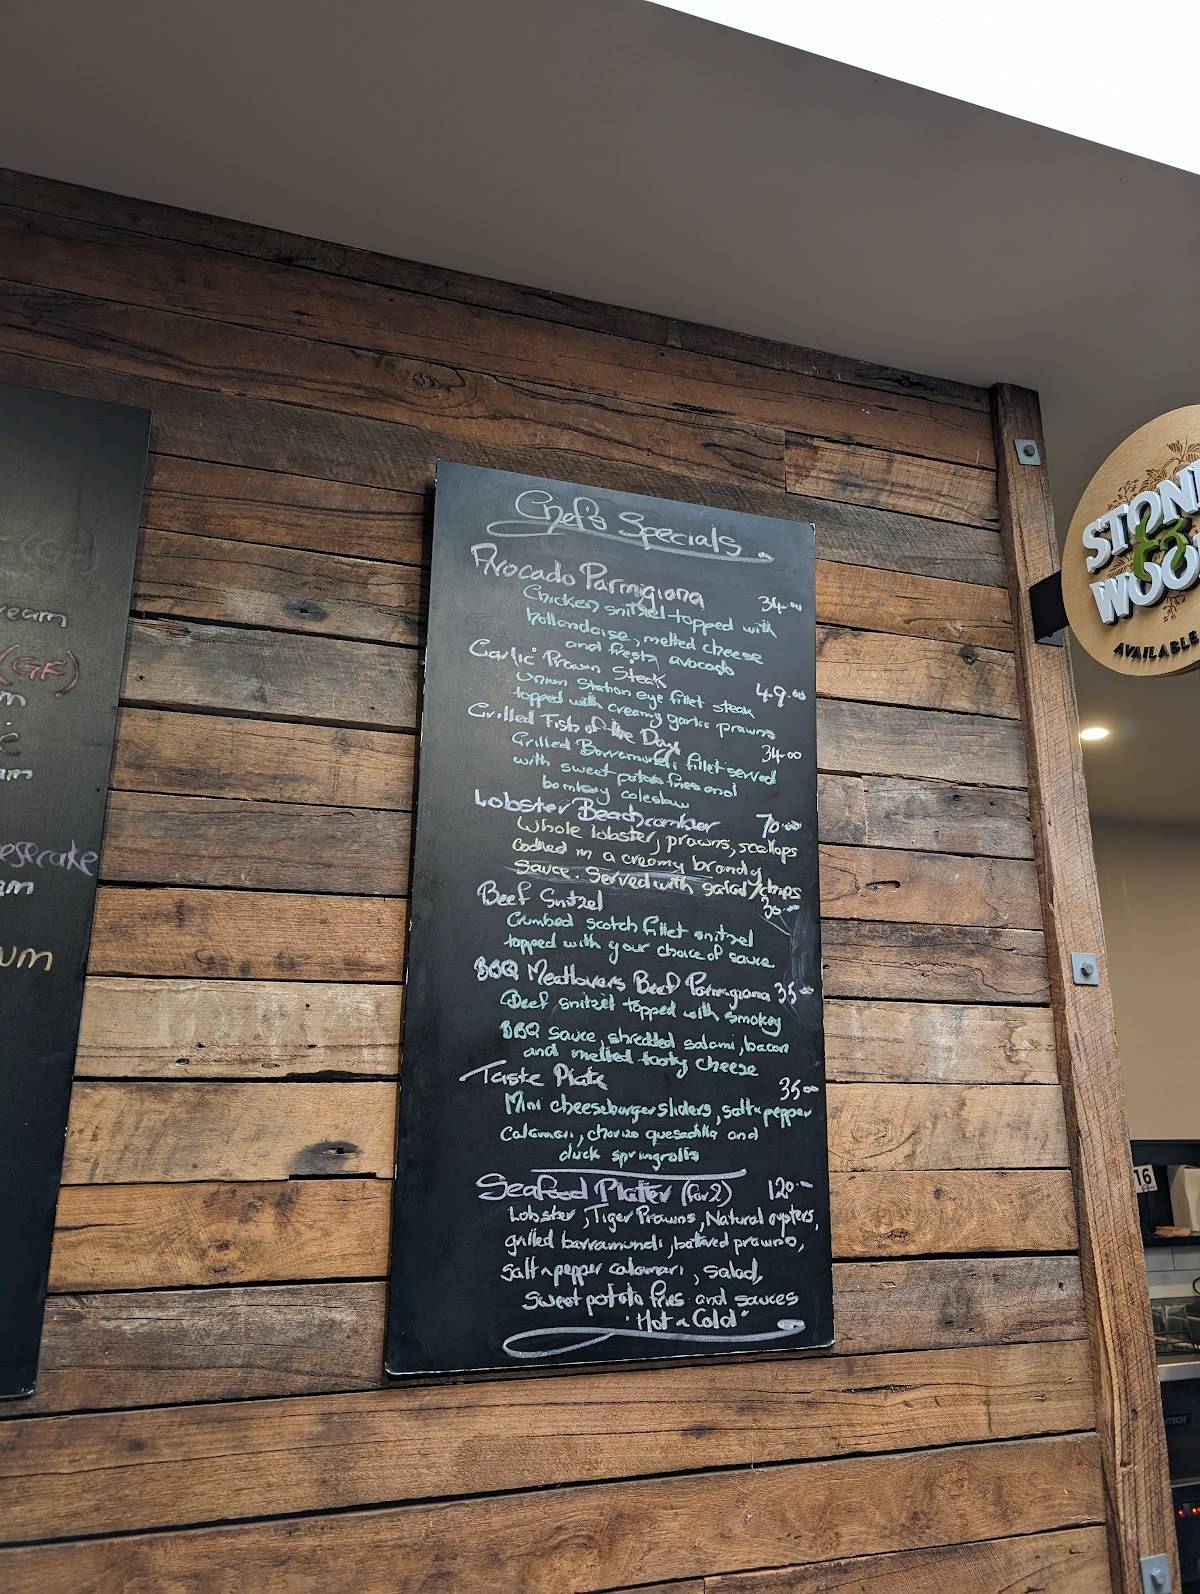 Chef's Specials
Avocado Parmigiana 34.00
Chicken snitzel topped with
hollandaise, melted cheese
and fresh avocado
Garlic Prawn Steak 49.00
Union Station eye fillet steak
topped with creamy garlic prawns
Grilled Fish of the Day 34.00
Grilled Barramundi fillet served
with sweet potato fries and
bombay coleslaw
Lobster Beachcomber 70.00
Whole lobster, prawns, scallops
cooked in a creamy brandy
sauce. Served with salad/chips
Beef Snitzel 30.00
Crumbed scotch fillet snitzel
topped with your choice of sauce
BBQ Meatlovers Beef Parmigiana 35.00
Beef snitzel topped with smokey
BBQ sauce, shredded salami, bacon
and melted tasty cheese
Taste Plate 35.00
Mini cheeseburger sliders, salt n pepper
Calamari, chorizo quesadilla and
duck springrolls
Seafood Platter (for 2) 120.00
Lobster, Tiger Prawns, Natural oysters,
grilled barramundi, battered prawns,
Salt n pepper calamari, salad,
Sweet potato fries and sauces
"Hot n Cold"
eam
(GF)
m
am
esecake
am
um
STON
&
WOO
AVAILABLE
16